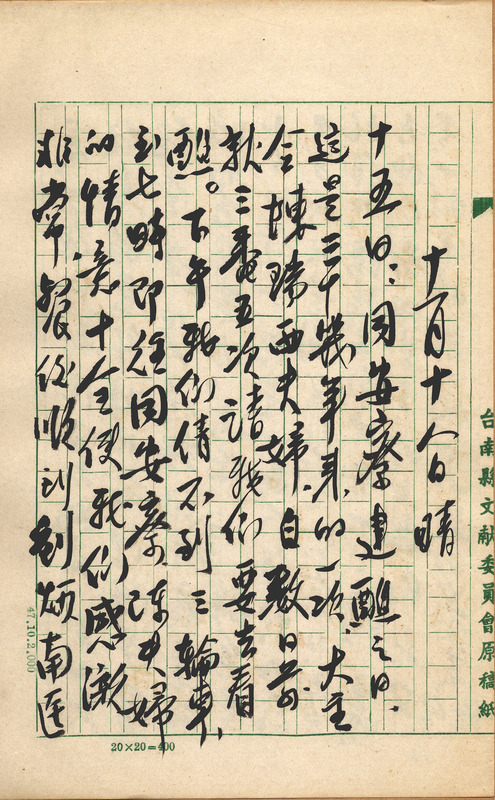 十一月十八日 晴
十五日:同安寮建醮之日.
這是三十幾年來的一次.大主
令陳瑞西夫婦.自数日前
就三番五次請我们要去看
醮。下午我们倩不到三輪車,
到七時即往同安寮.陳夫婦
的情意十令使我们感激
非常餐後順到劉煩南医
台南縣文献委員會原稿紙
47.10.2.000
20×20=400